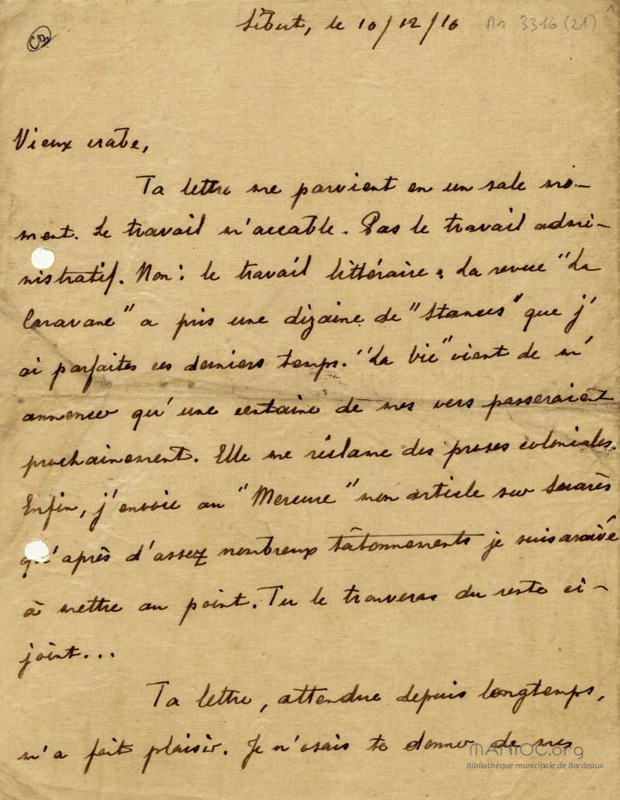 Sibut, le 10/12/16
Ms 3316 (21)
CB
Vieux crabe,
Ta lettre me parvient en un sale mo-
ment. Le travail m'accable. Pas le travail admi-
nistratif. Non : le travail littéraire. La revue "La
Caravane" a pris une dizaine de "Stances" que j'
ai parfaites ces derniers temps. "La Vie" vient de m'
annoncer qu'une centaine de mes vers passeraient
prochainement. Elle me réclame des proses coloniales.
Enfin, j'envoie au "Mercure" mon article sur Suarès
qu'après d'assez nombreux tâtonnements je suis arrivé
à mettre au point. Tu le trouveras du reste ci-
joint...
Ta lettre, attendue depuis longtemps,
m'a fait plaisir. Je n'osais te donner de mes
MANIOC.org
Bibliothèque municipale de Bordeaux